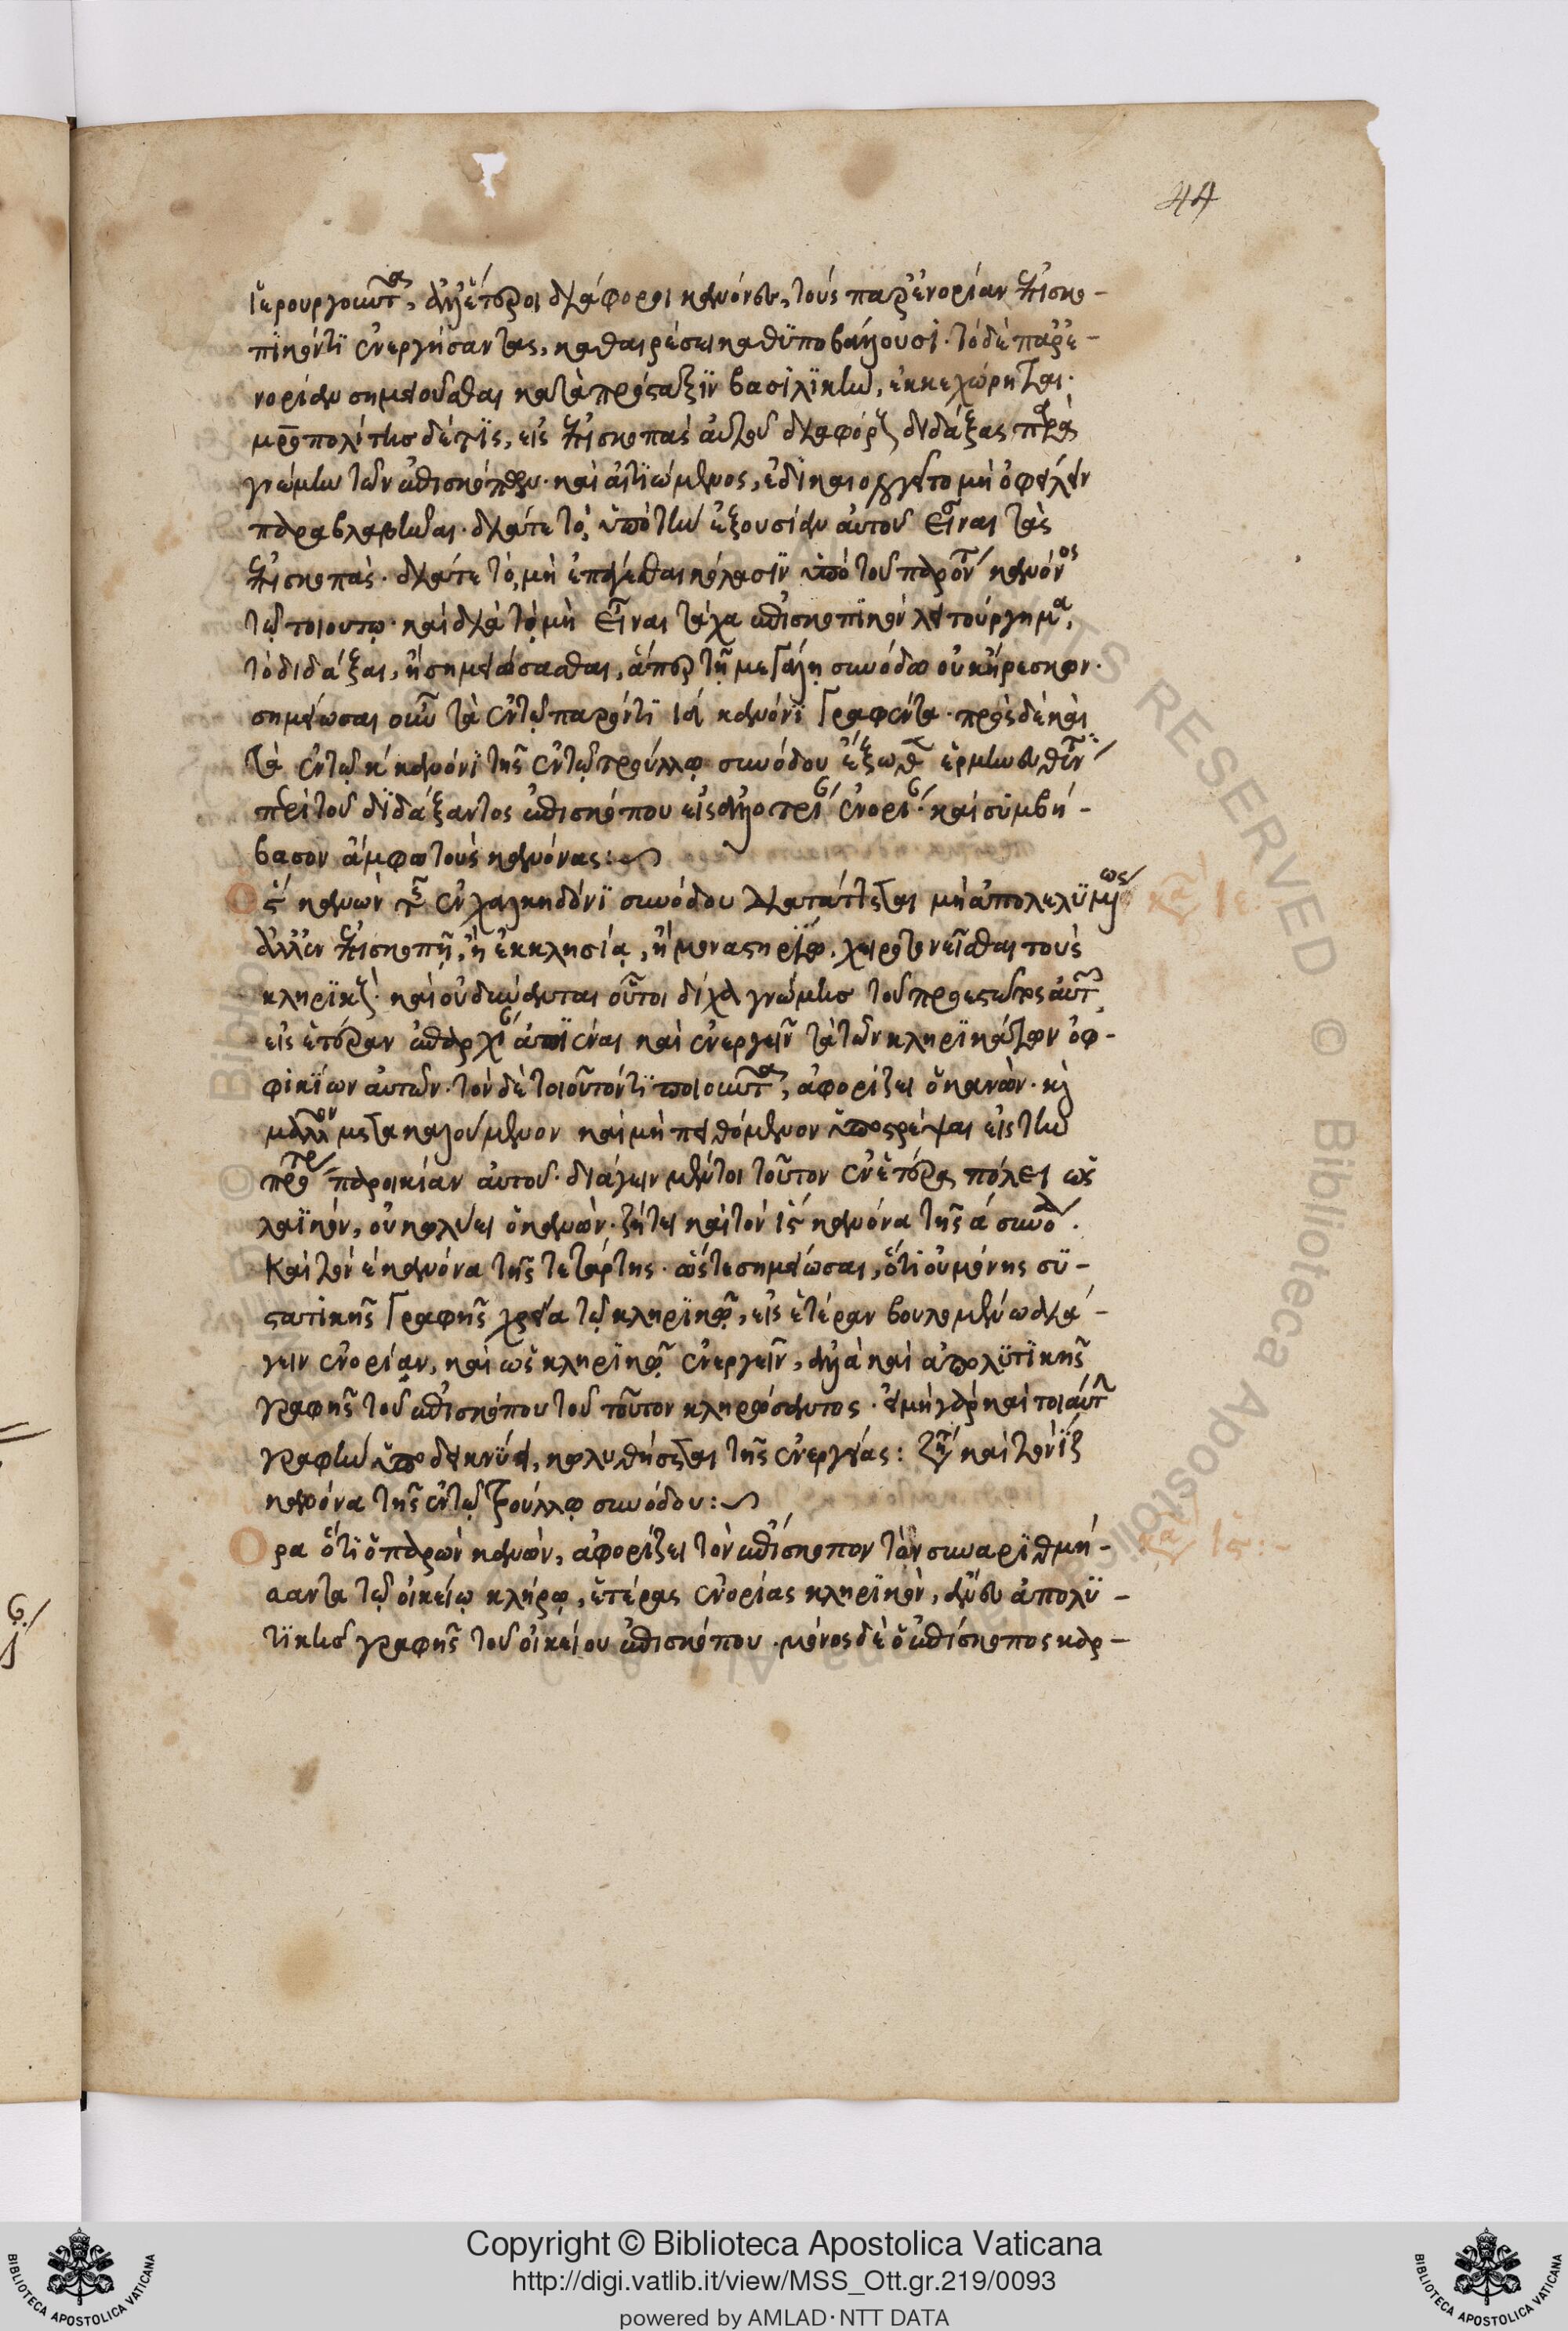 44
ἱερουργοῦντας, ἀλλ' ἕτεροι διάφοροι κανόνες, τοὺς παρ' ἐνορίαν ἐπισκο-
πικόν τι ἐνεργήσαντας, καθαιρέσει καθυποβάλλουσι· τὸ δὲ παρ' ἐ-
νορίαν σημειοῦσθαι κατὰ πρόσταξιν βασιλικὴν, ἐκκεχώρηται·
μητροπολίτης δέ τις, εἰς ἐπισκοπὰς αὐτοῦ διαφόρους διδάξας παρὰ
γνώμην τῶν ἐπισκόπων· καὶ αἰτιώμενος, ἐδικαιολογεῖτο μὴ ὀφείλειν
παραβλαφθῆναι· διά τε τὸ, ὑπὸ τὴν ἐξουσίαν αὐτοῦ εἶναι τὰς
ἐπισκοπάς· διά τε τὸ, μὴ ἐπάγεσθαι κόλασιν ἀπὸ τοῦ παρόντος κανόνος
τῷ τοιούτῳ· καὶ διὰ τὸ μὴ εἶναι τάχα ἐπισκοπικὸν λειτούργημα,
τὸ διδάξαι, ἢ σημειώσασθαι, ἅπερ τῇ μεγάλῃ συνόδω οὐκ ἤρεσκον·
σημείωσαι οὖν τὰ ἐν τῷ παρόντι ιδ κανόνι γραφέντα· πρὸς δὲ καὶ
τὰ ἐν τῷ κ κανόνι τῆς ἐν τῷ τρούλλῳ συνόδου ἔξωθεν ἑρμηνευθέντα
περὶ τοῦ διδάξαντος ἐπισκόπου εἰς ἀλλοτρίαν ἐνορίαν· καὶ συμβί-
βασον ἀμφω τοὺς κανόνας:
Ὁ ϛ κανὼν τῆς ἐν χαλκηδόνι συνόδου διατάττεται μὴ ἀπολελυμένως κεφ ιε
ἀλλ' ἐν ἐπισκοπῇ, ἢ ἐκκλησίᾳ, ἢ μοναστηρίῳ, χειροτονεῖσθαι τοὺς
κληρικούς· καὶ οὐ δύνανται οὗτοι δίχα γνώμης τοῦ προεστῶτος αὐτῶν
εἰς ἑτέραν ἐπαρχίαν ἀπιέναι καὶ ἐνεργεῖν τὰ τῶν κληρικάτων ὀφ-
φικίων αὐτῶν· τὸν δὲ τοιοῦτόν τι ποιοῦντα, ἀφορίζει ὁ κανών· καὶ
μᾶλλον μετακαλούμενον καὶ μὴ πειθόμενον ὑποστρέψαι εἰς τὴν
προτέραν παροικίαν αὐτοῦ· διάγειν μέντοι τοῦτον ἐν ἑτέρᾳ πόλει ὡς
λαϊκὸν, οὐ κωλύει ὁ κανών· ζήτει καὶ τὸν ιϛ κανόνα τῆς α συνόδου.
Καὶ τὸν ε κανόνα τῆς τετάρτης· ὥστε σημείωσαι, ὅτι οὐ μόνης συ-
στατικῆς γραφῆς χρεία τῷ κληρικῷ, εἰς ἑτέραν βουλομένω διά-
γειν ἐνορίαν, καὶ ὡς κληρικῷ ἐνεργεῖν, ἀλλὰ καὶ ἀπολυτικῆς
γραφῆς τοῦ ἐπισκόπου τοῦ τοῦτον κληρώσαντος· εἰ μὴ γὰρ καὶ τοιαύτην
γραφὴν ὑποδεικνύει, κωλυθήσεται τῆς ἐνεργείας: ζήτει καὶ τὸν ιζ
κανόνα τῆς ἐν τῷ τρούλλῳ συνόδου:
Ὅρα ὅτι ὁ παρὼν κανὼν, ἀφορίζει τὸν ἐπίσκοπον τὸν συναριθμή- κεφ ιϛ:
σαντα τῷ οἰκείῳ κλήρῳ, ἑτέρας ἐνορίας κληρικὸν, ἄνευ ἀπολυ-
τικῆς γραφῆς τοῦ οἰκείου ἐπισκόπου· μόνος δὲ ὁ ἐπίσκοπος καρ-
Copyright © Biblioteca Apostolica Vaticana
http://digi.vatlib.it/view/MSS_Ott.gr.219/0093
powered by AMLAD·NTT DATA